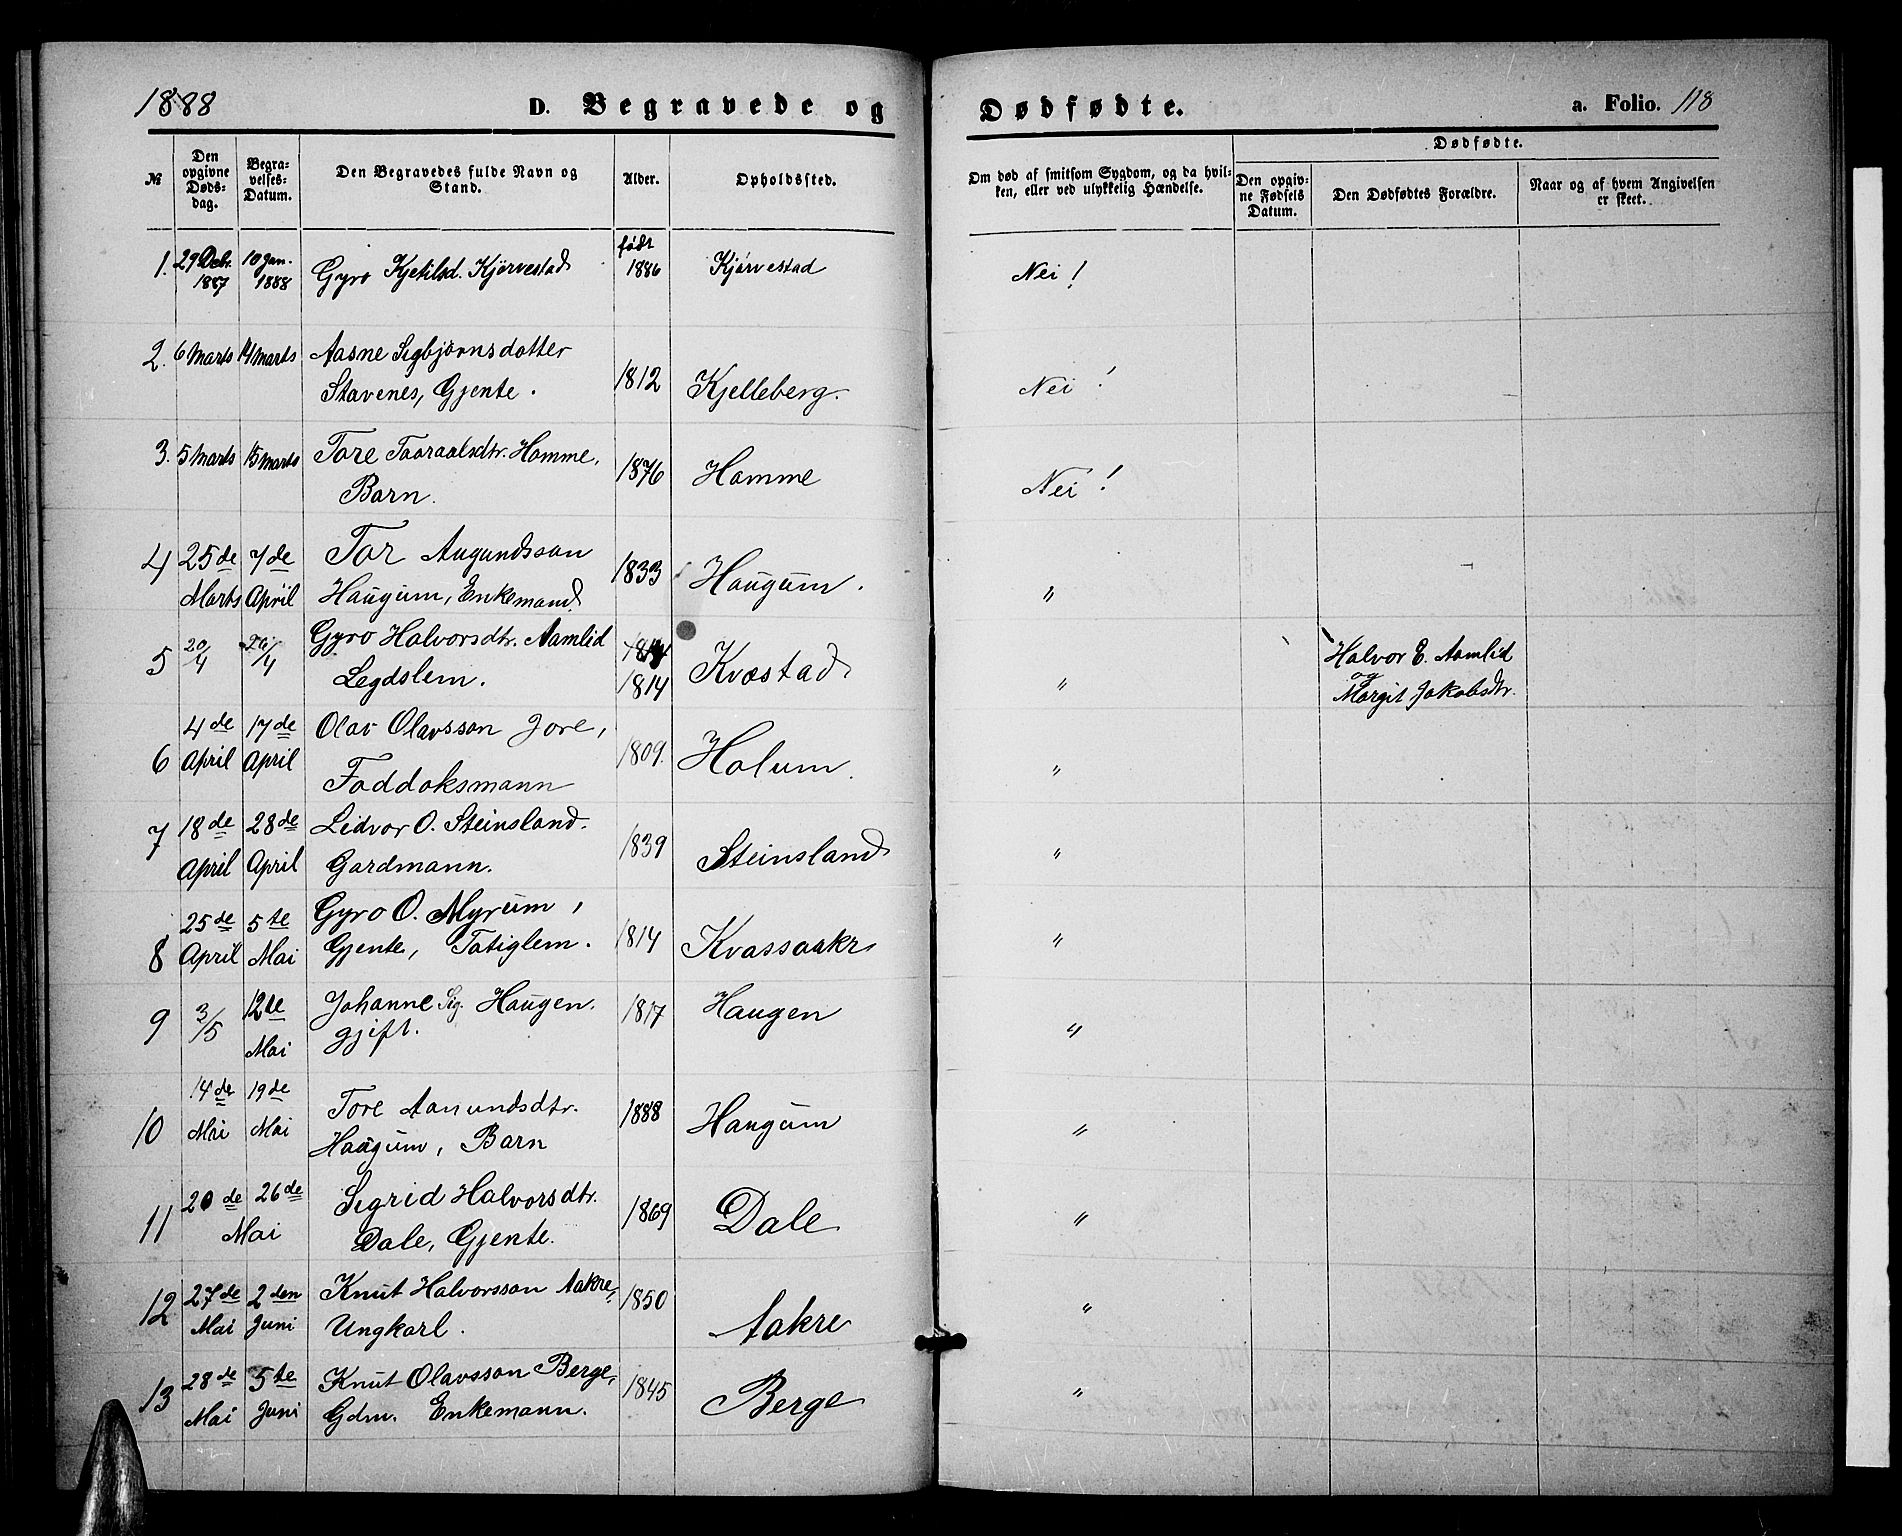 1888 D. Begravede og Dødfødte. a. Folio. 118
№
Den opgivne Døds-dag.
Begra-velses-Datum.
Den Begravedes fulde Navn og Stand.
Alder.
Opholdssted.
Om død af smitsom Sygdom, og da hvil-ken, eller ved ulykkelig Hændelse.
Dødfødte.
Den opgiv-ne Fødsels Datum.
Den Dødfødtes Forældre.
Naar og af hvem Angivelsen er skeet.
født
1. 29 Debr. 10 Jan. Gyro Kjetilsd. Kjørvestad 1886 Kjørvestad Nei!
1887 1888
2. 6 Marts 14 Marts Aasne Sigbjørnsdotter
Stavenes, Gjente. 1812 Kjelleberg. Nei!
3. 5 Marts 15 Marts Tore Taaraalsdtr. Homme, 1876 Homme Nei!
Barn.
4 25de 7de Tor Augundsson 1833 Haugum. "
Marts April Haugum, Enkemand
5 20/4 26/4 Gyro Halvorsdtr. Aamlid Kvæstad " Halvor E. Aamlid
Legdslem. 1814 og
Margit Jakobsdtr.
6 4de 17de Olav Olavsson Jore, 1809. Holum. "
April April Foddoksmann
7 18de 28de Lidvor O. Steinsland. 1839 Steinsland "
April April Gardmann.
8 25de 5te Gyro O. Myrum, 1814 Kvassaakr "
April Mai Gjente, Fatiglem.
9 3/5 12te Johanne Sig. Haugen. 1817 Haugen "
Mai gjift.
10 14de 19de Tore Aanundsdtr. 1888 Haugum "
Mai Mai Haugum, Barn
11 20de 26de Sigrid Halvorsdtr. 1869 Dale "
Mai Dale, Gjente.
12 27de 2den Knut Halvorsson Aakre, 1850 Aakre "
Mai Juni Ungkarl.
13 28de 5te Knut Olavsson Berge, 1845 Berge "
Mai Juni Gdm. Enkemann.